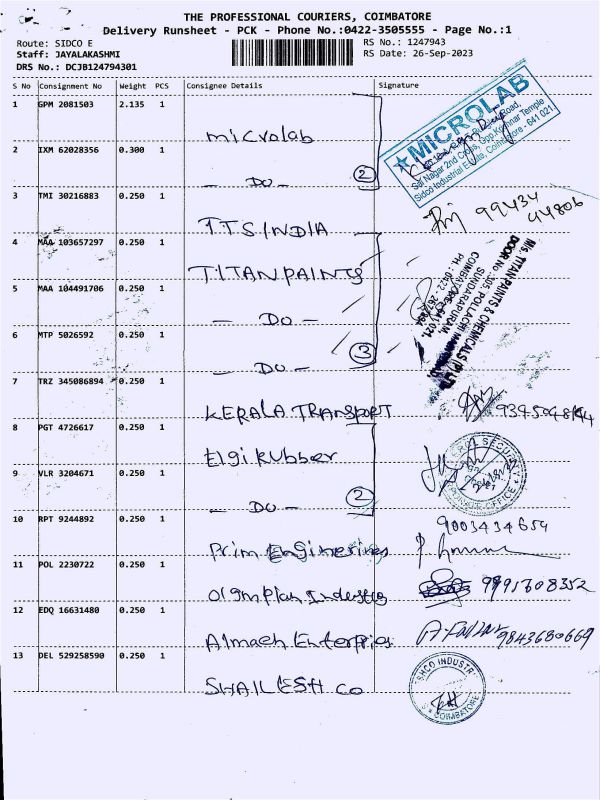 THE PROFESSIONAL COURIERS, COIMBATORE
Delivery Runsheet - PCK - Phone No.:0422-3505555 - Page No.:1
Route: SIDCO E
RS No.: 1247943
Staff: JAYALAKASHMI
RS Date: 26-Sep-2023
DRS No.: DCJB124794301
S No Consignment No Weight PCS Consignee Details Signature
1 GPM 2081503 2.135 1
microlab
2 IXM 62028356 0.300 1
— DO — 2
MICROLAB
Sidco Industrial Estate, Coimbatore - 641 021
3 TMI 30216883 0.250 1
TTS INDIA
99434
44806
4 MAA 103657297 0.250 1
TITAN PAINTS
5 MAA 104491706 0.250 1
— DO —
M/s. TITAN PAINTS & CHEMICALS (P) LTD
6 MTP 5026592 0.250 1
— DO — 3
7 TRZ 345086894 0.250 1
KERALA TRANSPORT
8 PGT 4726617 0.250 1
Elgi Rubber
9 VLR 3204671 0.250 1
— DO — 2
10 RPT 9244892 0.250 1
9003434659
Prim Engineerings
11 POL 2230722 0.250 1
Olymplan Industries
12 EDQ 16631480 0.250 1
Almach Enterpries
9843680669
13 DEL 529258590 0.250 1
SHAILESH CO
COIMBATORE